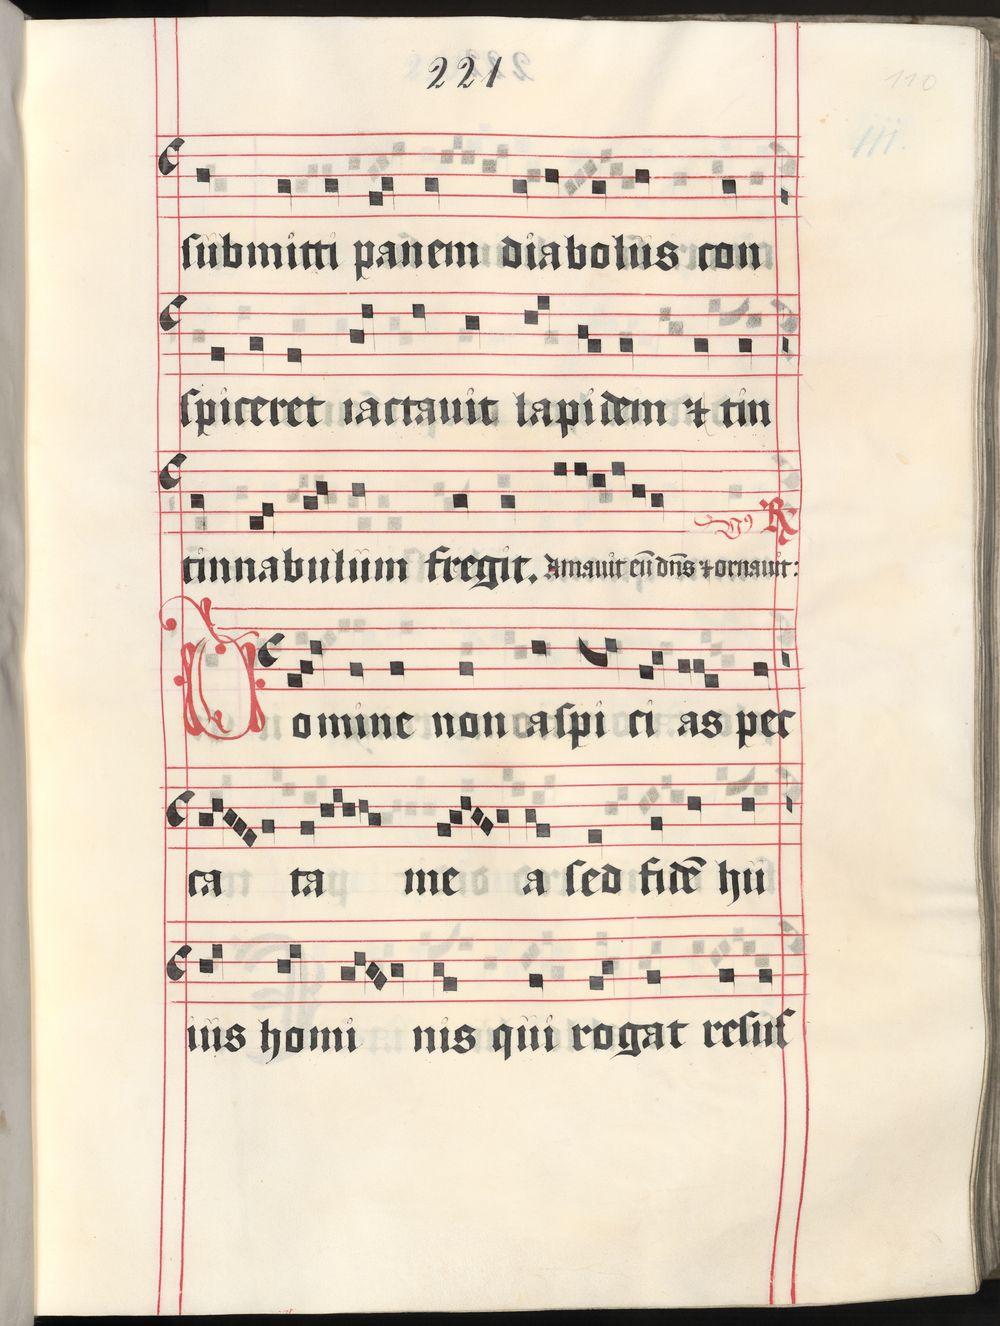 221
110
III.
submitti panem diabolus con
spiceret iactauit lapidem & tin
tinnabulum fregit. Amauit eū dn̄s & ornauit:
V R
Domine non aspi ci as pec
ca ta me a sed fidē hu
ius homi nis qui rogat resus